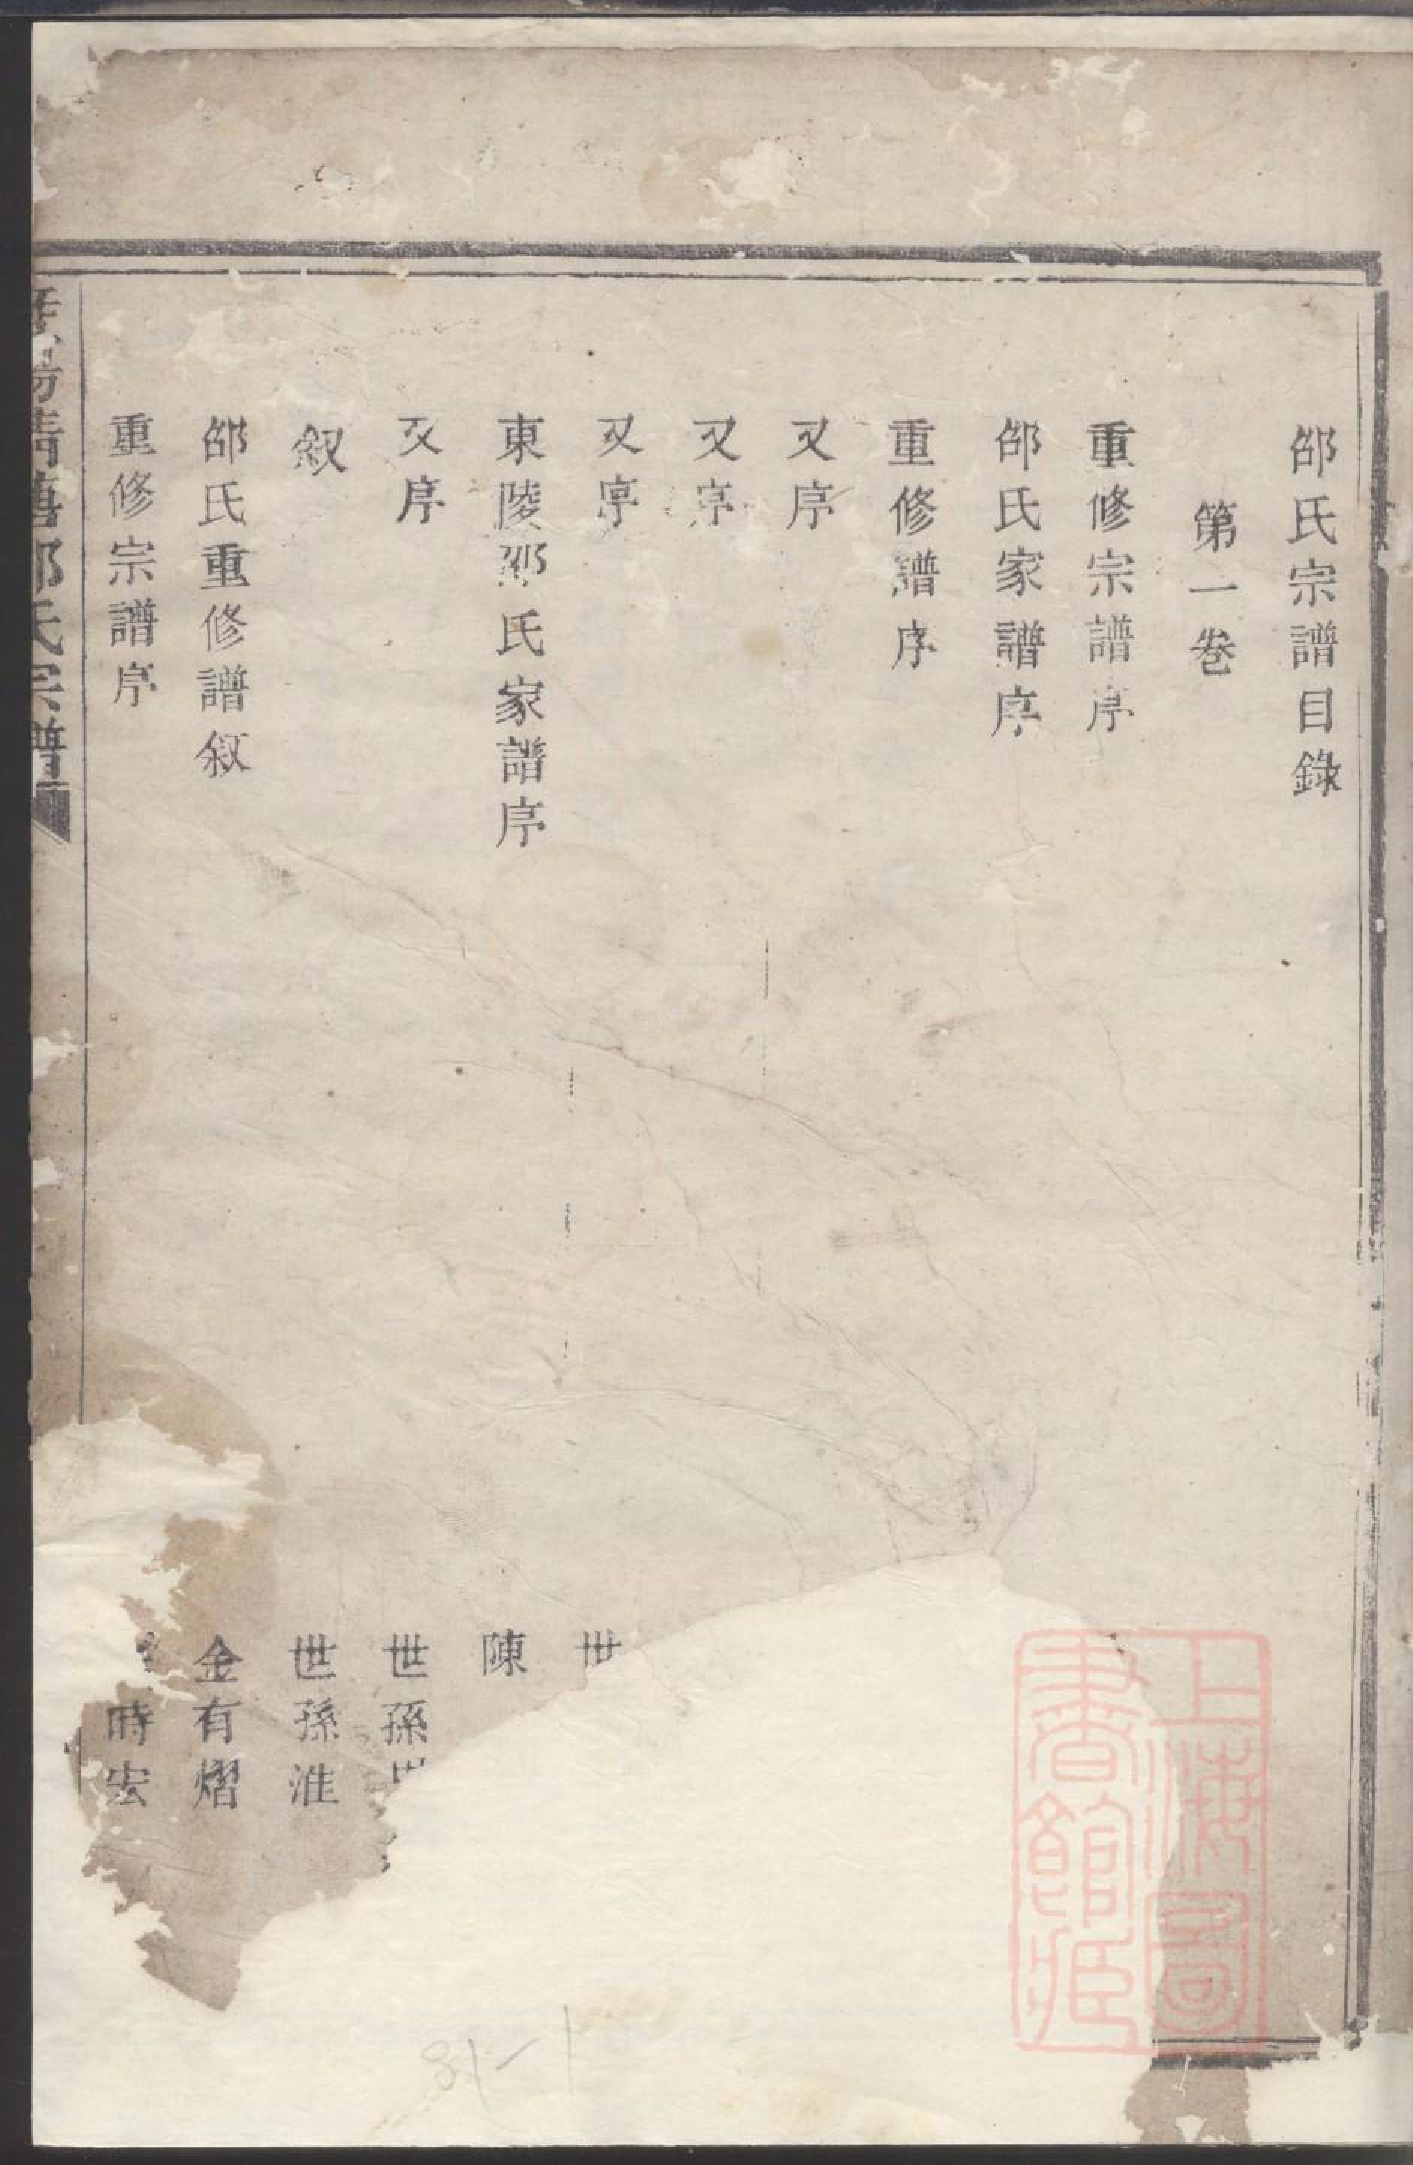 邵氏宗譜目錄
第一卷
重修宗譜序
邵氏家譜序
重修譜序
又序
又序
又序 世
東陵邵氏家譜序 陳
又序 世孫
敘 世孫淮
邵氏重修譜敘 金有熠
重修宗譜序 時宏
邵氏宗譜
上海圖書館藏
81-1